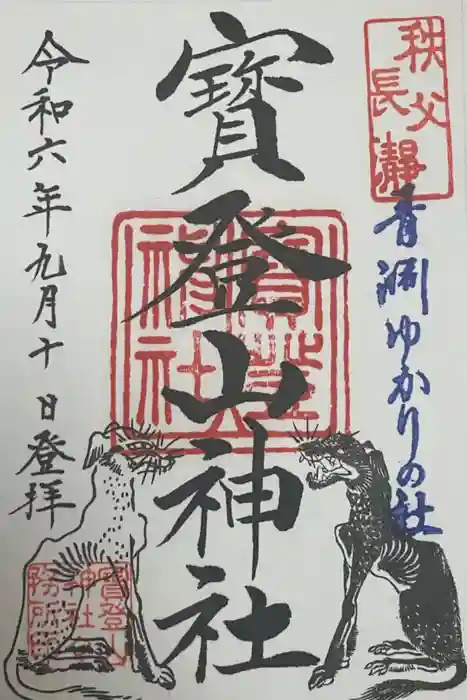 秩父
長瀞
青淵ゆかりの社
寳登山神社
令和六年九月十日登拝
寳登山
神社
務所印